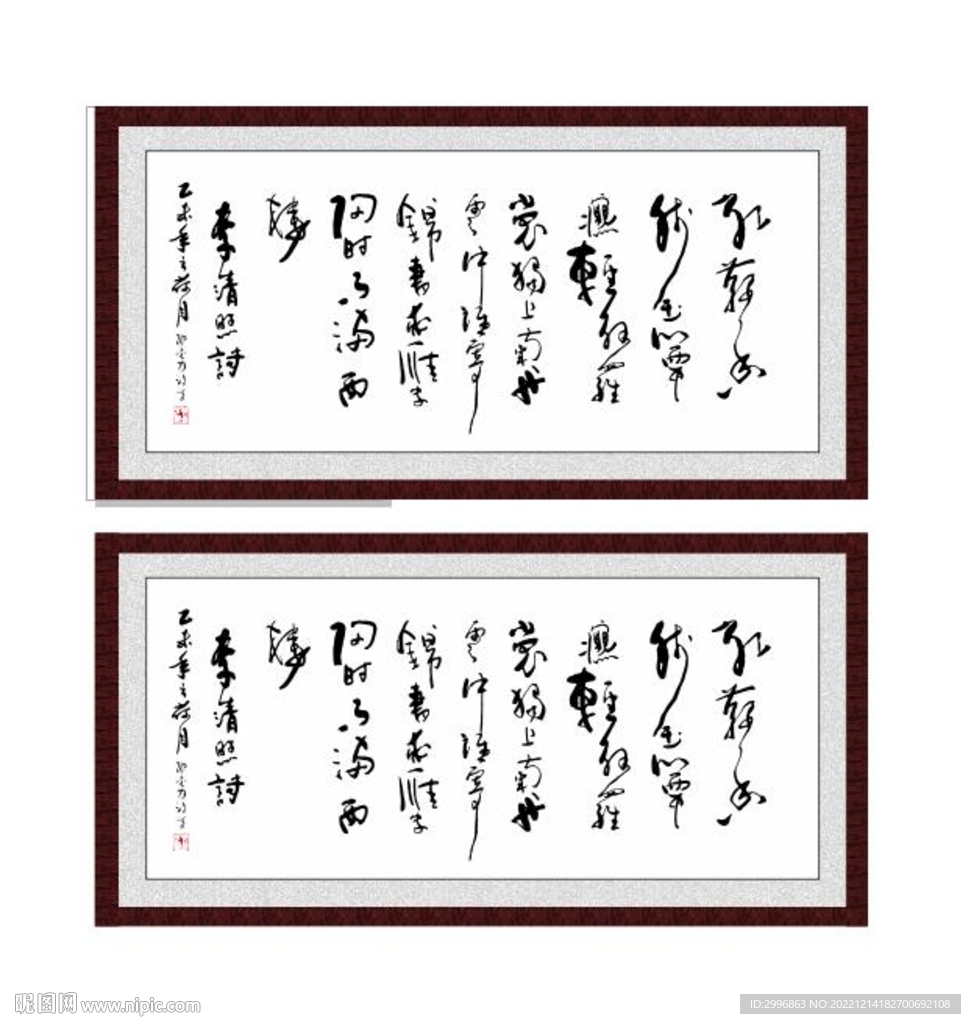 紅藕香
殘玉簟
秋輕解羅
裳獨上蘭舟
雲中誰寄
錦書來雁字
回時月滿西
樓
李清照詩
乙未年之荷月
紅藕香
殘玉簟
秋輕解羅
裳獨上蘭舟
雲中誰寄
錦書來雁字
回時月滿西
樓
李清照詩
乙未年之荷月
昵图网 www.nipic.com
ID:2996863 NO:20221214182700692108